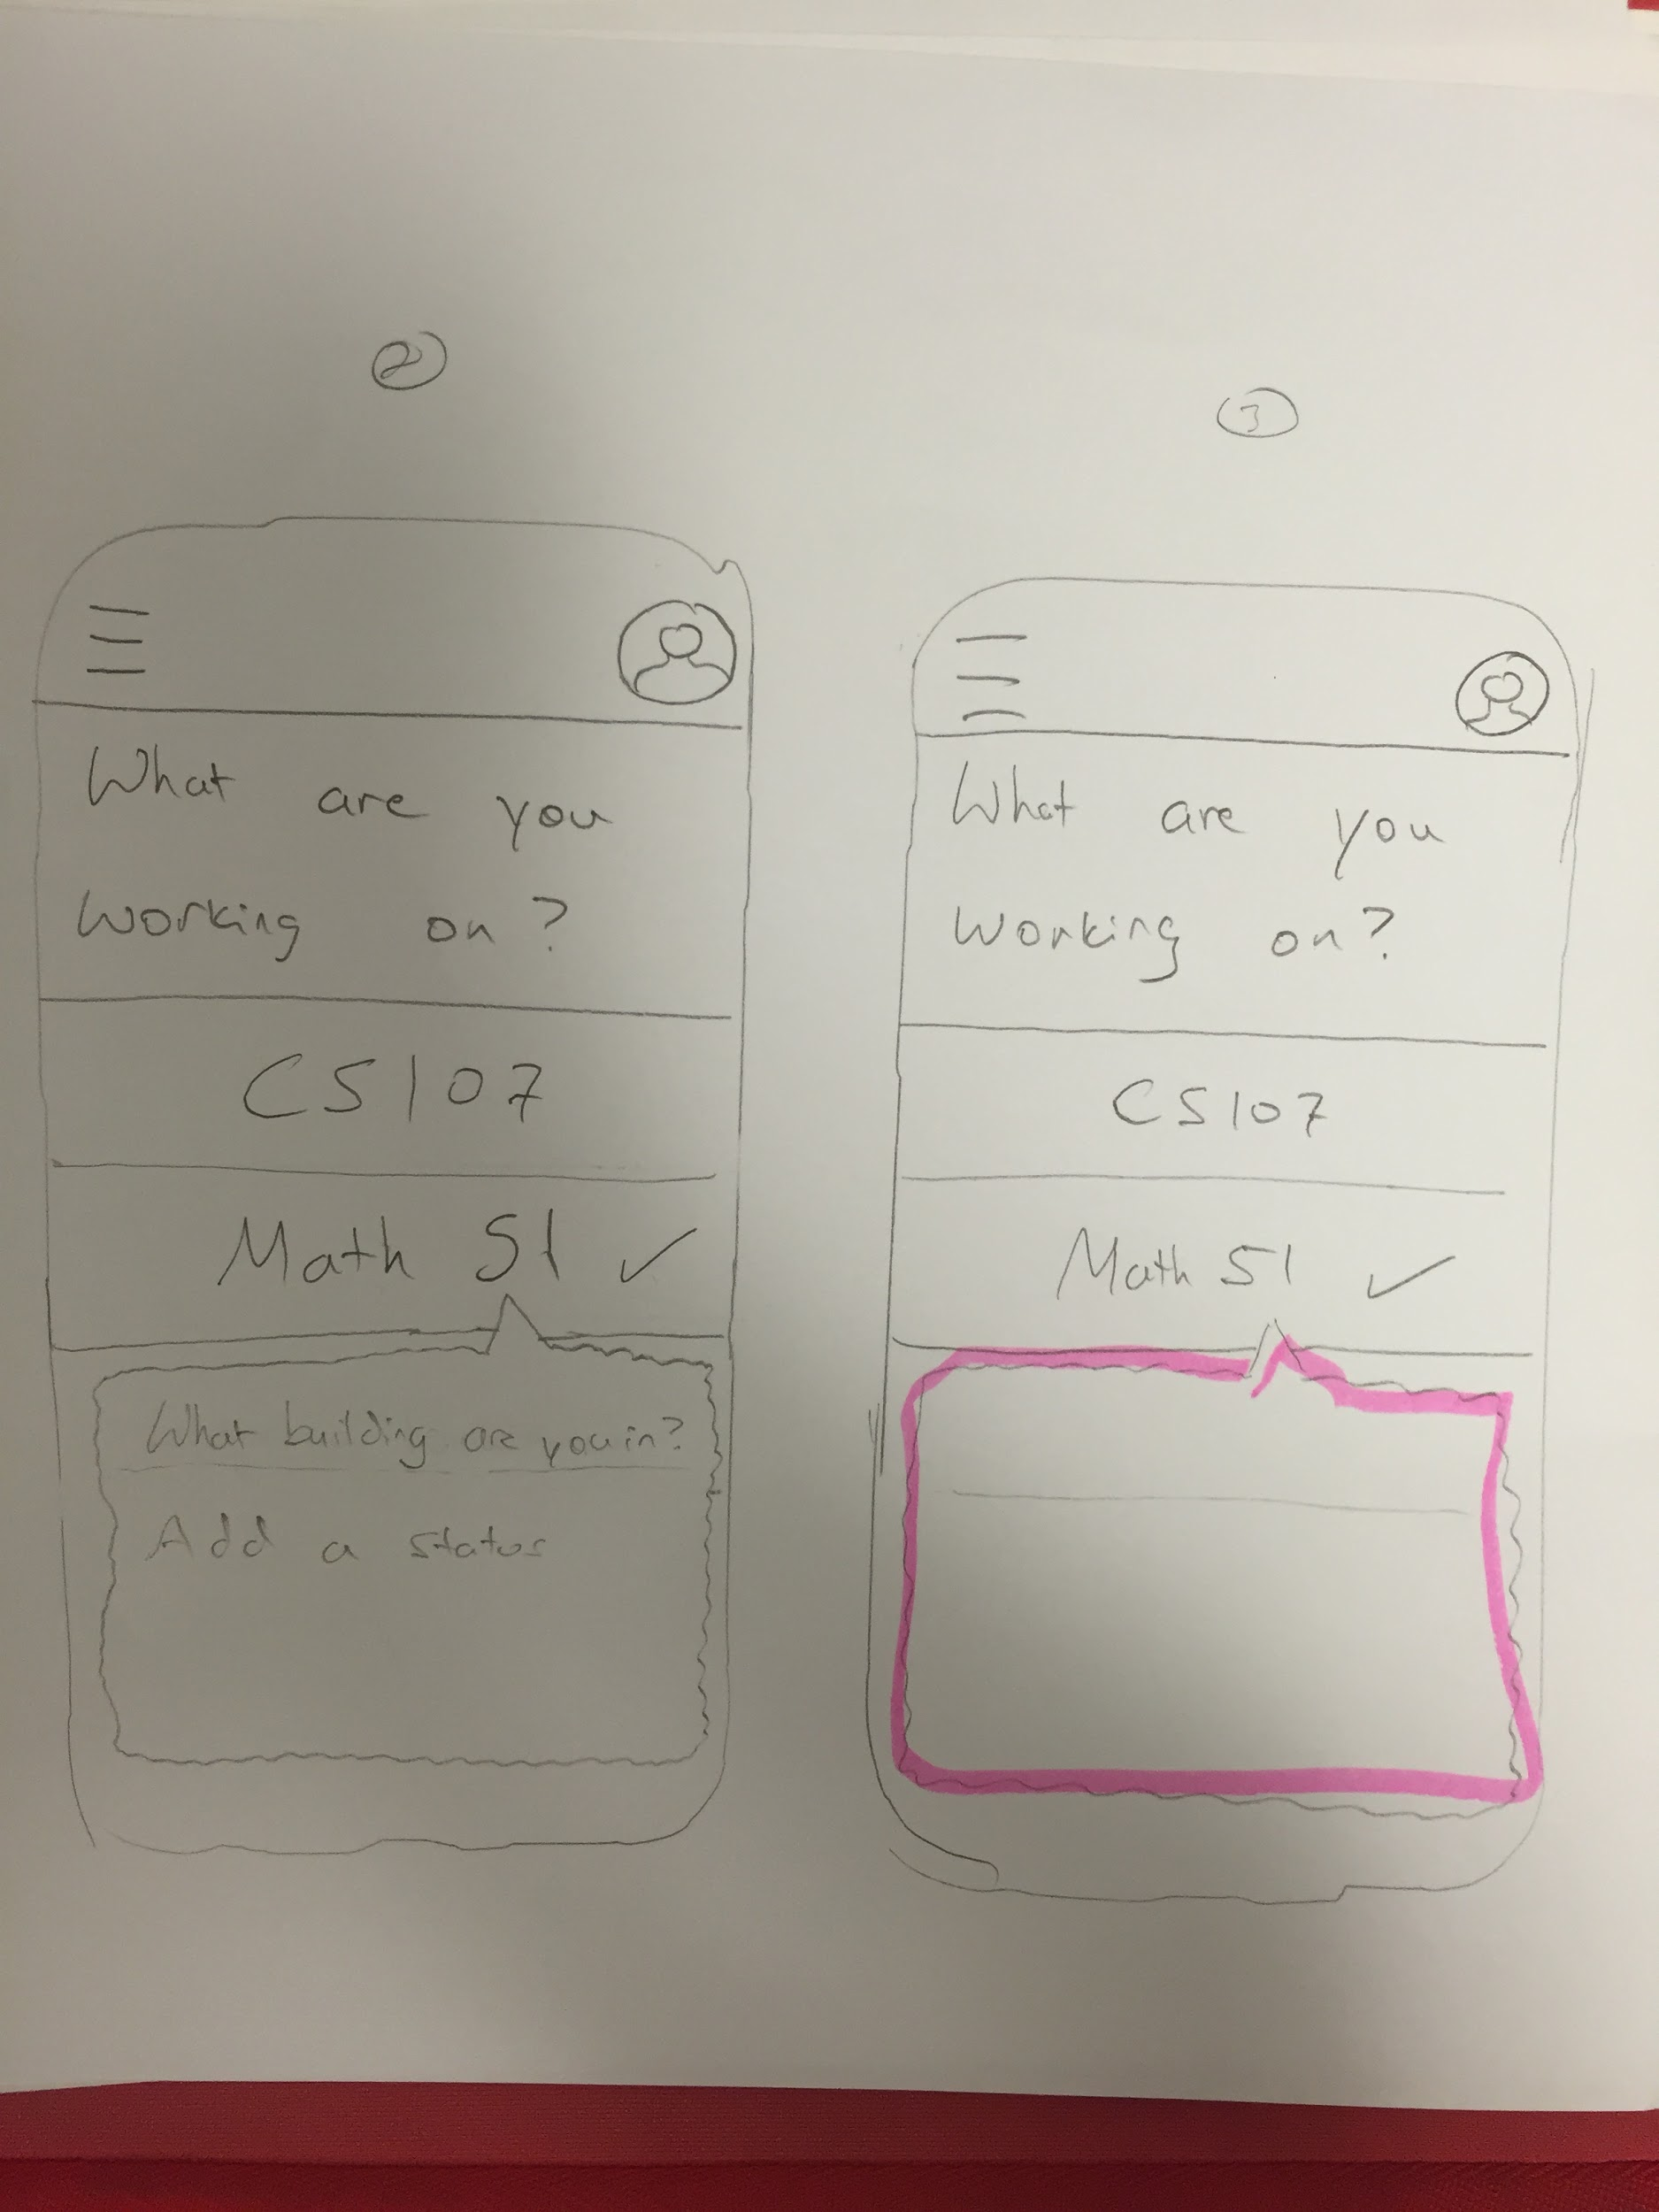 2
What are you
working on?
CS107
Math 51 ✓
What building are you in?
Add a status
3
What are you
working on?
CS107
Math 51 ✓